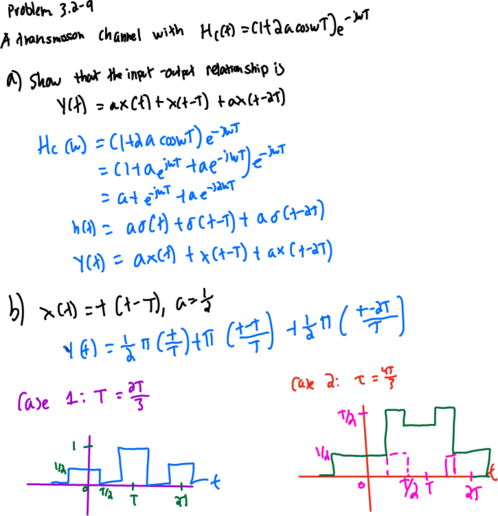 Problem 3.2-9
A transmisson channel with Hc(f) = (1+2a cos wT)e^-jwT
a) Show that the input-output relationship is
y(t) = ax(t) + x(t-T) + ax(t-2T)
Hc(w) = (1+2a cos wT) e^-jwT
= (1+ae^jwT + ae^-jwT)e^-jwT
= a + e^-jwT + ae^-j2wT
h(t) = aσ(t) + σ(t-T) + aσ(t-2T)
y(t) = ax(t) + x(t-T) + ax(t-2T)
b) x(t) = t(t-T), a = 1/2
y(t) = 1/2 π (t/T) + π (t-T/T) + 1/2 π (t-2T/T)
Case 1: T = 2T/3
Case 2: τ = 4T/3
1
1/2
0
T/2
T
2T
t
T/2
1/2
0
T/2
T
2T
t